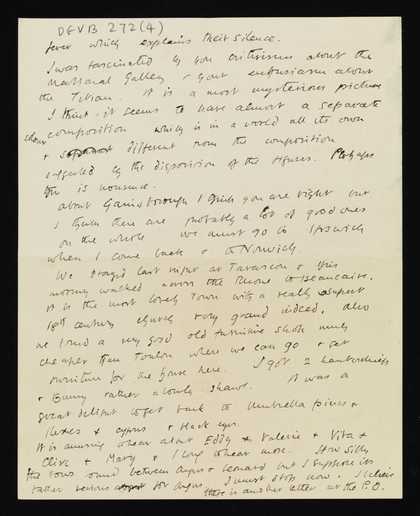 DGVB 272(4)
fever which explains their silence.
I was fascinated by you criticisms about the
National Gallery & your enthusiasm about
the Titian. It is a most mysterious picture
I think - it seems to have almost a separate
colour composition which is in a world all its own
& different from the composition
suggested by the disposition of the figures. Perhaps
this is nonsense.
About Gainsborough I think you are right but
I think there are probably a lot of good ones
on the whole. We must go to Ipswich
when I come back & to Norwich.
We stayed last night at Tarascon & this
morning walked across the Rhone to Beaucaire.
It is the most lovely town with a really superb
18th century church very grand indeed. Also
we found a very good old furniture shop much
cheaper than Toulon where we can go & get
furniture for the house here. I got 2 handkerchiefs
& Bunny rather a lovely shawl. It was a
great delight to get back to umbrella pines &
ilexes & cyprus &
It is amusing to hear about Eddy & Valerie & Vita &
Clive & Mary & I long to hear more. How silly
the rows sound between Angus & Leonard but I suppose its
rather serious for Angus. I must stop now. I believe
there is another letter at the P.O.